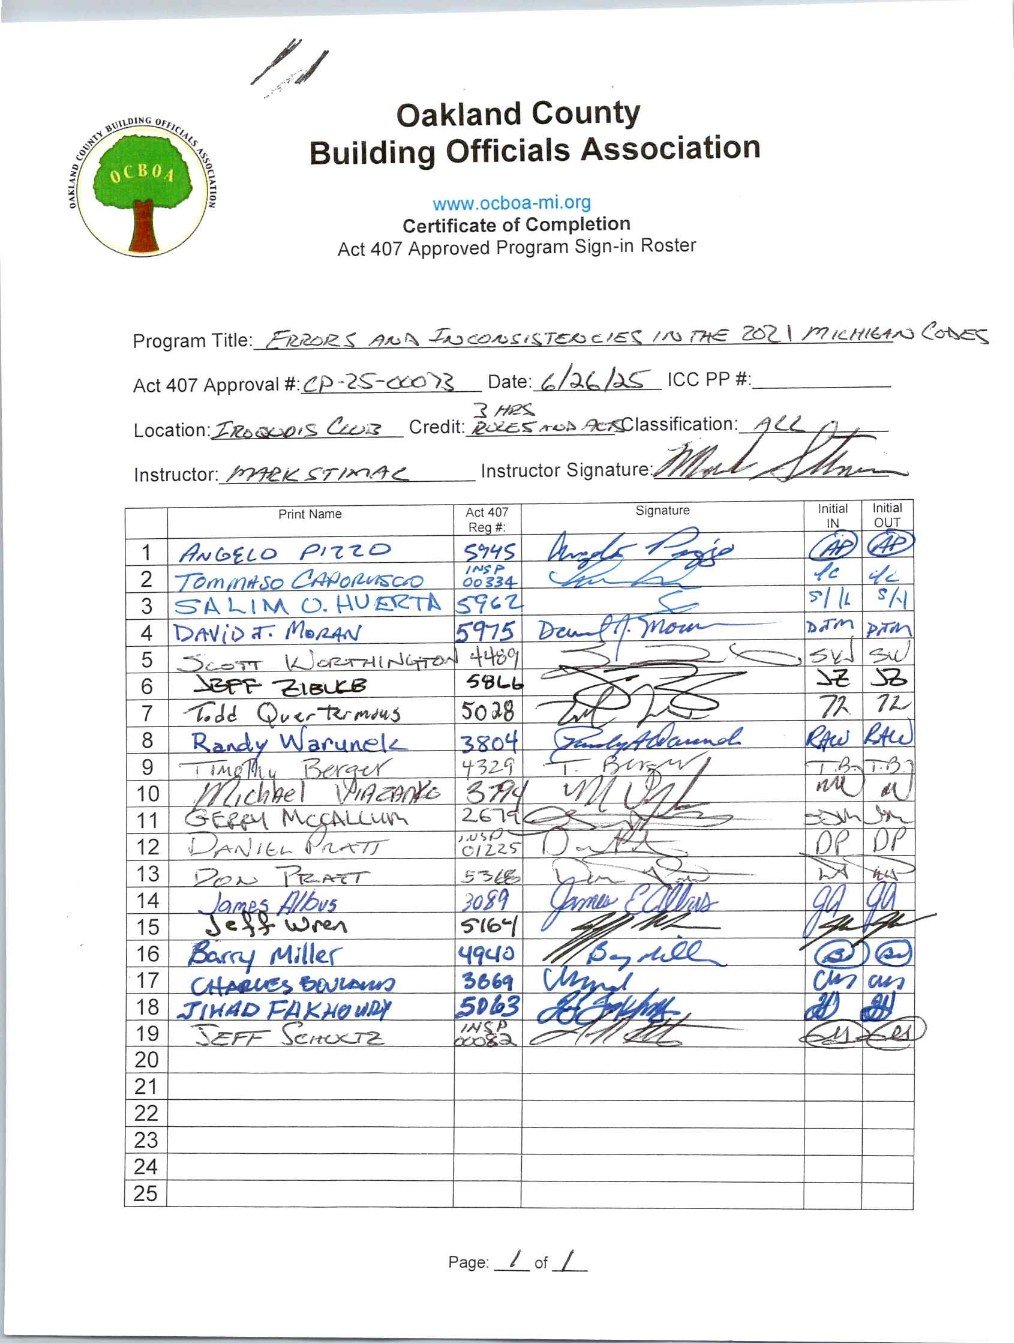 OAKLAND COUNTY BUILDING OFFICIALS ASSOCIATION
OCBOA
Oakland County
Building Officials Association
www.ocboa-mi.org
Certificate of Completion
Act 407 Approved Program Sign-in Roster
Program Title: ERRORS AND INCONSISTENCIES IN THE 2021 MICHIGAN CODES
Act 407 Approval #: CP-25-00073 Date: 6/26/25 ICC PP #:
Location: IROQUOIS CLUB Credit: 3 HRS RULES AND ACTS Classification: ALL
Instructor: MARK STIMAC Instructor Signature: Mark Stimac
Print Name Act 407 Reg #: Signature Initial IN Initial OUT
1 ANGELO PIZZO 5945 Angelo Pizzo AP AP
2 TOMMASO CAPORUSCIO INSP 00334
3 SALIM O. HUERTA 5962
4 DAVID J. MORAN 5975 David J. Moran DJM DJM
5 SCOTT WORTHINGTON 4489 SW SW
6 JEFF ZIELKE 5866 JZ JZ
7 Todd Quartermous 5028
8 Randy Warunek 3804 Randy A Warunek RAW RAW
9 Timothy Berger 4329 T. Berger T.B. T.B.
10 Michael VIAZANKO 3794
11 GERRY MCCALLUM 2679
12 DANIEL PRATT INSP 01225 DP DP
13 DON PRATT 5368
14 James Albus 3089 James E Albus JA JA
15 Jeff Wren 5164
16 Barry Miller 4940 Barry Miller BM BM
17 CHARLES 3669
18 JIHAD FAKHOURY 5063
19 JEFF SCHULTZ INSP 00082
20
21
22
23
24
25
Page: 1 of 1